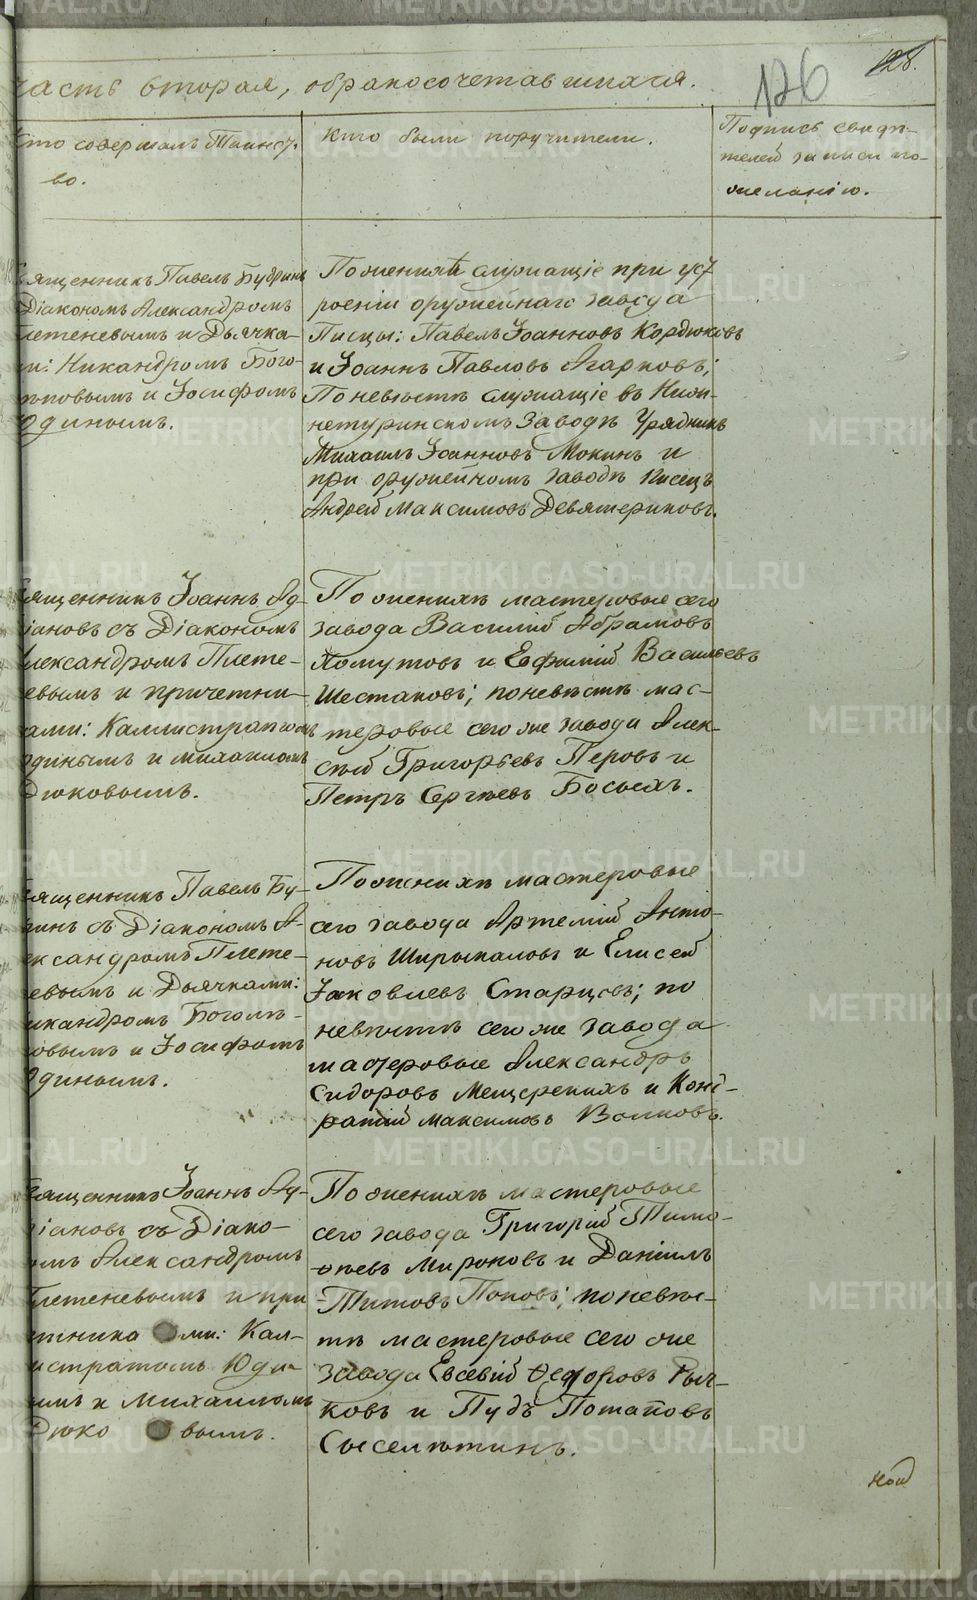 часть вторая, обракосочетавшихся.
126
128.
кто совершалъ Таинст-
во.
Кто были поручители.
Подпись свидѣ-
телей записи по-
желанію.
Священникъ Павелъ Бубринъ
Діакономъ Александромъ
Плетеневымъ и Дьячка-
ми: Никандромъ Бого-
и Іосифомъ
Юдинымъ.
По женихѣ служащіе при уст
роеніи оружейнаго завода
Писцы: Павелъ Іоанновъ Кордюковъ
и Іоаннъ Павловъ Агарковъ;
По невѣстѣ служащіе въ Ниж-
нетуринскомъ Заводѣ Урядникъ
Михаилъ Іоанновъ Мокинъ и
при оружейномъ заводѣ писецъ
Андрей Максимовъ Девятериковъ.
Священникъ Іоаннъ Ад-
іановъ съ Діакономъ
Александромъ Плете-
невымъ и причетни-
ками: Каллистратомъ
Юдинымъ и Михаиломъ
Дюковымъ.
По женихѣ мастеровые сего
завода Василій Абрамовъ
Хомутовъ и Евфимій Васильевъ
Шестаковъ; по невѣстѣ мас-
теровые сего же завода Алек-
сѣй Григорьевъ Перовъ и
Петръ Сергѣевъ Босыхъ.
Священникъ Павелъ Бу-
ринъ съ Діакономъ А-
лександромъ Плете-
невымъ и Дьячками:
Никандромъ Боголѣ-
повымъ и Іосифомъ
Юдинымъ.
По женихѣ мастеровые
сего завода Артемій Анто-
новъ Ширыкаловъ и Елисей
Іаковлевъ Старцовъ; по
невѣстѣ сего же завода
мастеровые Александръ
Сидоровъ Мещерскихъ и Конд-
ратій Максимовъ Волковъ.
Священникъ Іоаннъ Ад-
ріановъ съ Діако-
номъ Александромъ
Плетеневымъ и при
четника ми: Кал-
листратомъ Юди-
нымъ и Михаиломъ
Дюко вымъ.
По женихѣ мастеровые
сего завода Григорій Тимо-
ѳѣевъ Мироновъ и Даніилъ
Титовъ Поповъ; по невѣс-
тѣ мастеровые сего же
завода Евсевій Ѳедоровъ Рыч-
ковъ и Пудъ Потаповъ
Сыселютинъ.
METRIKI.GASO-URAL.RU